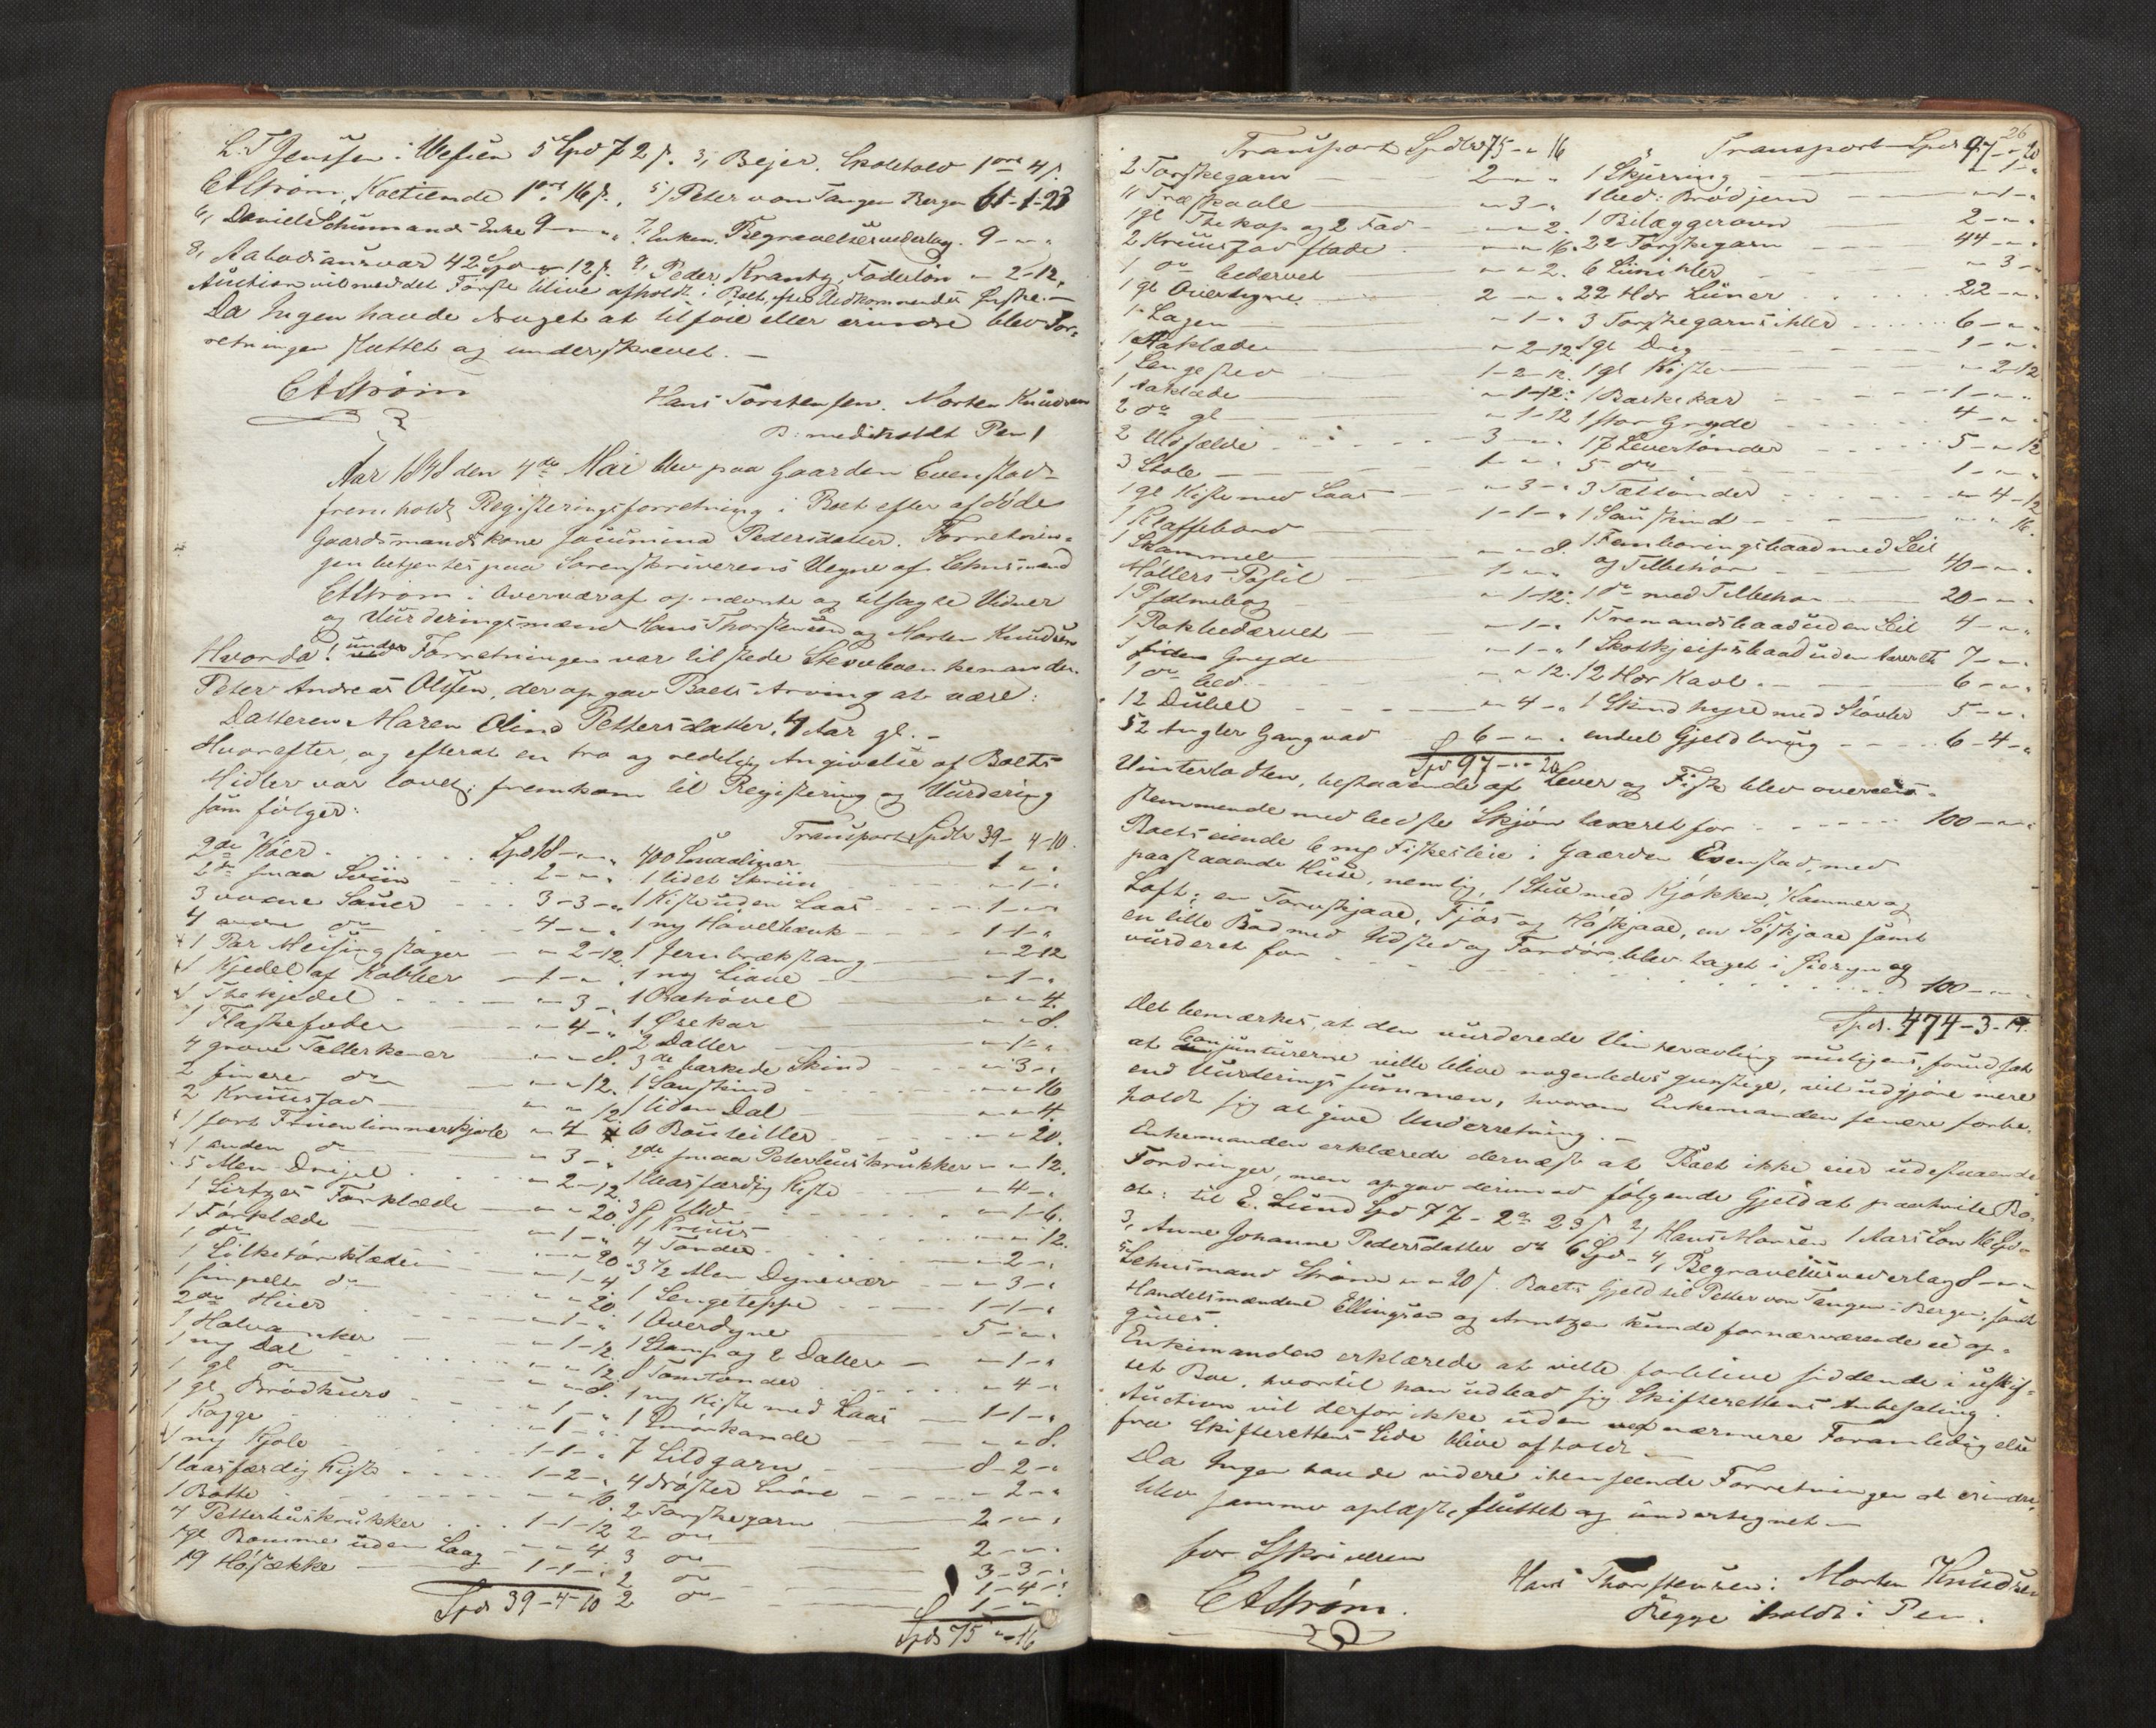 L. T. Jenssen i Wefsen 5 Spd 72 s. 3, Bejer, Skoletold 1 ort 4 s.
CAStrøm, Koetiende 1 ort 16 s. 5, Peter von Tangen Bergen 61-1-23
6, Daniel Schumands Enke 9 - " - " 7, Enken, Begravelsesvederlag. 9 - " - "
8, Aabodsansvar 42 Spd - " - 12 s. 9, Peder Krantz, Føderløn " - 2-12,
Auction vil med det Første blive afholdt i Boet, efter Vedkommendes Ønske. -
Da Ingen havde Noget at tilføie eller erindre blev For-
retningen sluttet og underskrevet. -
CAStrøm
Hans Torstensen. Morten Knudsen
B: medihollt Pen
Aar 1848 den 4de Mai blev paa Gaarden Evenstad
fremholdt Registeringsforretning i Boet efter afdøde
Gaardmandskone Jacumina Pedersdatter. Forretnin-
gen betjentes paa Sorenskriverens Vegne af Lehnsmand
CAStrøm i Overvær af opnævnte og tilsagte Vidner
og Vurderingsmænd Hans Thorstensen og Morten Knudsen
Hvorda! under Forretningen var tilstede Stervboenkemanden
Peter Andreas Olsen, der opgav Boets Arving at være:
Datteren Maren Olina Pettersdatter, 4 Aar gl. -
Hvorefter, og efterat en tro og redelig Angivelse af Boets
Midler var lovet, fremkom til Registering og Vurdering
som følger:
2de Køer Spd 18 - " - "
2de smaa Sviin 2 - " - "
3 voxne Sauer 3-3-"
4 andre do 4 - " - "
1 Par Messingstager " - 2-12
1 Kjedel af Kobber 1 - " - "
1 Thekjedel " - 3 - "
1 Flaskefoder " - 4 - "
4 grove Tallerkener " - " - 8.
2 finere do " - " - 12.
2 Kruusfad " - " - 12
1 sort Fruentimmerkjole " - 4 - "
1 anden do " - 3 - "
5 Alen Dreiel " - 2-12
1 Sirtzes Forklæde " - " - 20
1 Forklæde " - 1 - "
1 do " - " - 20
1 Silketørklæde " - 1-4
1 simpelt do " - " - 20
2de Huer " - 1 - "
1 Halvanker " - 1-12
1 ny Dal " - " - 12
1 gl do " - " - 8.
1 gl Brødkurv " - 1 - "
1 Kagge " - 1 - "
1 ny Kjole 1-1-"
1 laasfærdig Kiste 1-2-"
1 Bøtte " - " - 6.
4 Petterhuuskrukker 1-1-12
1 gl Bomme uden Laag " - " - 4
19 Høsække 1-1-"
Spd 39-4-10
Transport Spd 39-4-10.
400 1 " - "
1 lidet Skriin " - 1 - "
1 Kiste uden Laas 1 - " - "
1 ny Høvelbænk 1-1-"
1 Jernbrækstang " - 2-12
1 ny Liaae " - 1 - "
1 " - " - 4.
1 Øsekar " - " - 8.
2 Daller " - 1 - "
3de barkede Skind " - 3 - "
1 Sauskind " - " - 16
1 liden Dal " - " - 4
6 Bouteiller " - " - 20.
2de smaa Peterhuuskrukker " - " - 12.
1 laasfærdig Kiste " - 4 - "
3 Uld " - 1-6.
1 Kruus " - " - 12.
4 Tønder " - 2 - "
3 1/2 Alen Dynevær " - 3 - "
1 Sengeteppe 1-1-"
1 Overdyne 5 - " - "
1 Stamp og 2 Daller " - 1 - "
8 Tomtønder " - 4 - "
1 ny Kiste med Laas 1-1-"
1 Smørkande " - " - 8.
7 Sildgarn 8-2-"
4 Snøre " - 2 - "
2 Torskegarn 2 - " - "
2 do 2 - " - "
3 do 3-3-"
2 do 1-4-"
2 do 1 - " - "
Spd 75 " - 16
26
Transport Spd 75 - " 16
2 Torskegarn 2 - " - "
11 Træskaale " - 3 - "
1 gl Thekop og 2 Fad " - " - 2.
2 Kruusfad flade " - " - 16.
1 do bedærvet " - " - 2.
1 gl Overdyne 2 - " - "
1 Lagen " - 1 - "
1 Aaklæde " - 2-12
1 Sengested 1-2-12.
1 Aaklæde " - 1-12
2 do gl " - 1-12
2 Uldfælde 3 - " - "
3 Stole 1 - " - "
1 gl Kiste med Laas " - 3 - "
1 Klaffebord 1-1-"
1 Skammel " - " - 8.
Møllers Postil 1 - " - "
1 Psalmebog " - 1-12.
1 Rok bedærvet " - 1 - "
1 liden Gryde " - 1 - "
1 do bed. " - " - 12.
12 Dubel " - 4 - "
52 Angler Gangvad 6 - " - "
Spd 97 - " - 20
Transport Spd 97 - " - 20
1 Skjerring " - 1 - "
1 bed: Brødjern " - 1 - "
1 Bilæggerovn 2 - " - "
22 Torskegarn 44 - " - "
6 " - 3 - "
22 Hdr Liner 22 - " - "
3 6 - " - "
1 gl Dreg 1 - " - "
1 gl Kiste " - 2-12
1 Barkekar 1 - " - "
1 stor Gryde 4 - " - "
17 Levertønder 5 - " - 12
5 do 1 - " - "
3 Tættønder " - 4-12
1 Sauskind " - " - 16.
1 Femboringsbaad med Seil
og Tilbehør 40 - " - "
1 do med Tilbehør 20 - " - "
1 Tremandsbaad uden Seil 4 - " - "
1 Skotkjeipsbaad uden Aarer 7 - " - "
12 Hdr Kavl 6 - " - "
1 Skindhyre med Støvler 5 - " - "
endeel Gjeldbrug 6-4-"
Vinterlodten, bestaaende af Lever og Fisk blev overeens-
stemmende med bedste Skjøn taxeret for 100 - " - "
Boets eiende 6 mg Fiskesleie i Gaarden Evenstad, med
paastaaende Huse, nemlig, 1 Stue med Kjøkken, Kammer og
Loft, en Torvskjaae, Fjøs og Høskjaae, en Søskjaae samt
en lille Bod med Udsted og Fordør blev taget i Øiesyn og
vurderet for 100 - " - "
Spd. 474-3-14.
Det bemærkes, at den vurderede Vinteravling muligens, forudsat
at conjuncturerne ville blive nogenledes gunstige, vil udgjøre mere
end Vurderingssummen, hvorom Enkemanden senere forbe-
holdt sig at give Underretning. -
Enkemanden erklærede dernæst at Boet ikke eier udestaaende
Fordringer, men opgav derimod følgende Gjeld at paahvile Bo-
et: til E. Lund Spd 77 - 2 ort 23 s 2, Hans Hansen 1 Aars Løn 16 Spd -
3, Anne Johanne Pedersdatter do 6 Spd - 4, Begravelsesvederlag 8 - " - "
5, Lehnsmand Strøm " - " - 20 s. Boets Gjeld til Petter von Tangen i Bergen, samt
Handelsmændene Ellingsen og Arntzen kunde for nærværende ei op-
gives.
Enkemanden erklærede at ville forblive siddende i uskif-
tet Boe, hvortil han udbad sig Skifterettens Anbefaling.
Auction vil derfor ikke uden nærmere Foranledigelse
fra Skifterettens Side blive afholdt. -
Da Ingen havde videre Forretningen at erindre
blev samme oplæst, sluttet og undertegnet -
for Sskriveren
CAStrøm.
Hans Thorstensen: Morten Knudsen
Begge iholdt Pen.